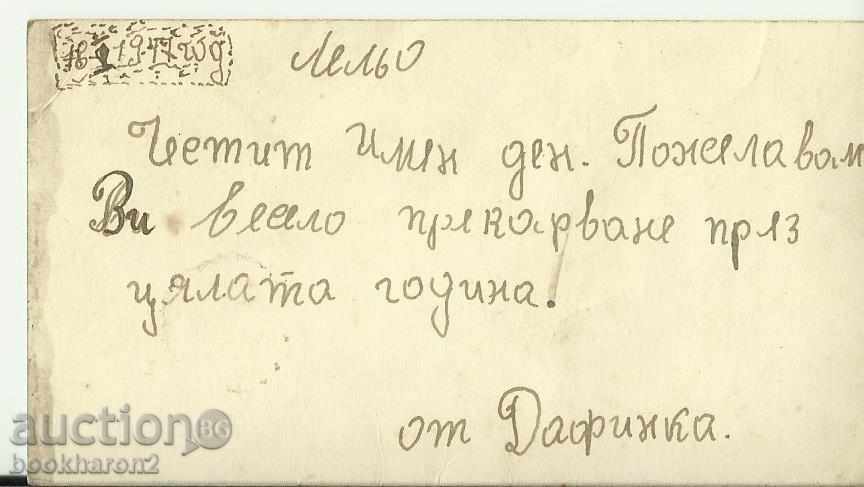 1947 год
Лельо
Четит имен ден. Пожелавам
Ви весело прекарване през
цялата година.
от Дафинка.
auction BG
bookharon2